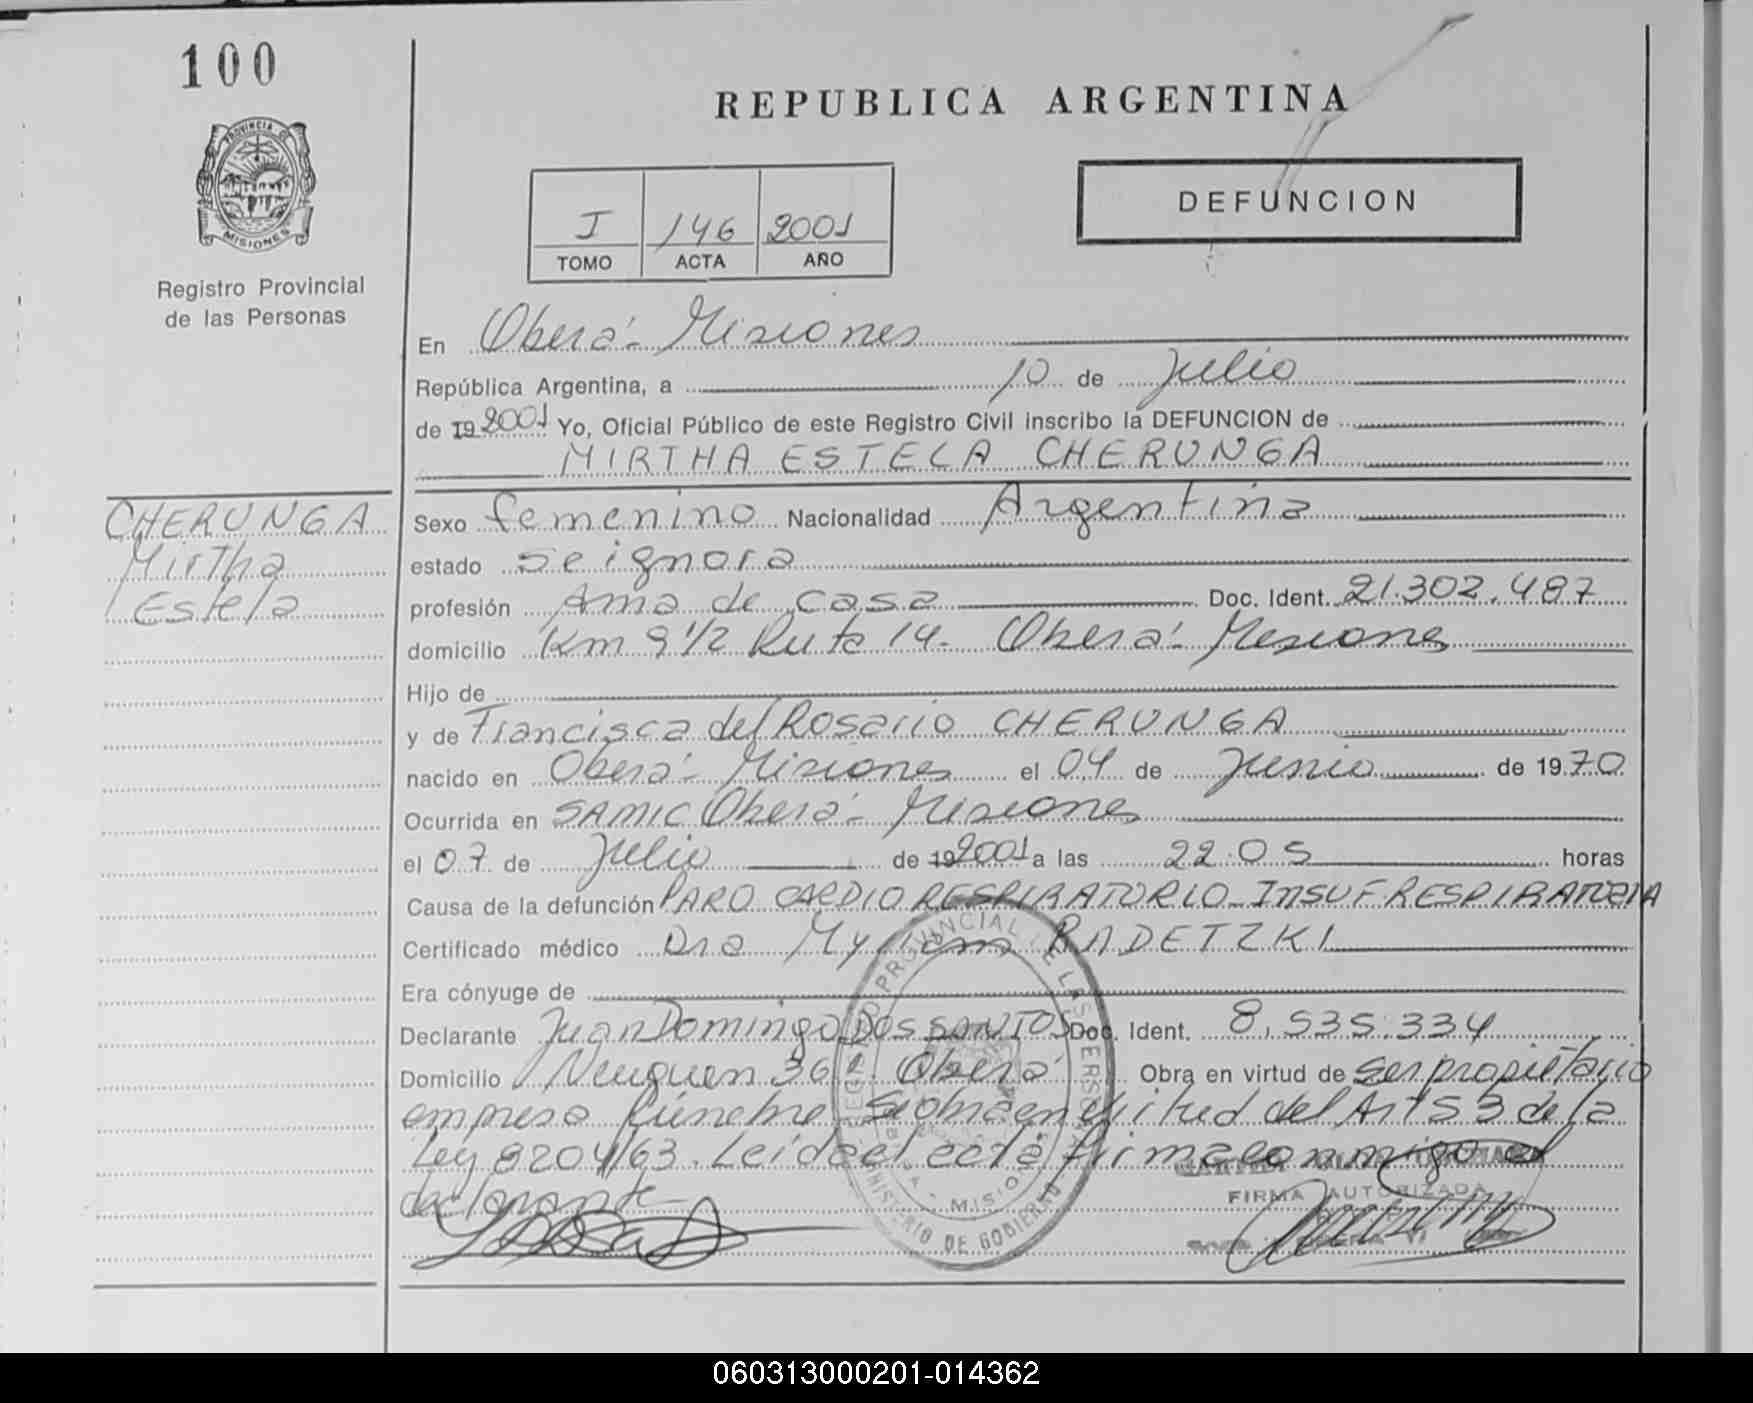 100
REPUBLICA ARGENTINA
PROVINCIA DE
MISIONES
DEFUNCION
I 146 2001
TOMO ACTA AÑO
Registro Provincial
de las Personas
En Oberá - Misiones
República Argentina, a 10 de Julio
de 19 2001 Yo, Oficial Público de este Registro Civil inscribo la DEFUNCION de
MIRTHA ESTELA CHERUNGA
CHERUNGA
Mirtha
Estela
Sexo femenino Nacionalidad Argentina
estado se ignora
profesión Ama de casa Doc. Ident. 21.302.487
domicilio Km 9 1/2 Ruta 14 - Oberá - Misiones
Hijo de
y de Francisca del Rosario CHERUNGA
nacido en Oberá - Misiones el 04 de Junio de 1970
Ocurrida en SAMIC Oberá - Misiones
el 07 de Julio de 19 2001 a las 22.05 horas
Causa de la defunción PARO CARDIO RESPIRATORIO - INSUF RESPIRATORIA
Certificado médico Dra Myriam RADETZKI
Era cónyuge de
Declarante Juan Domingo DOS SANTOS Doc. Ident. 8.535.334
Domicilio Neuquen 36 Oberá Obra en virtud de ser propietario
empresa fúnebre Se obra en virtud del Art 53 de la
Ley 8204/63. Leída el acta firma conmigo el
declarante
FIRMA AUTORIZADA
REGISTRO PROVINCIAL DE LAS PERSONAS
MINISTERIO DE GOBIERNO
OBERA - MISIONES
060313000201-014362